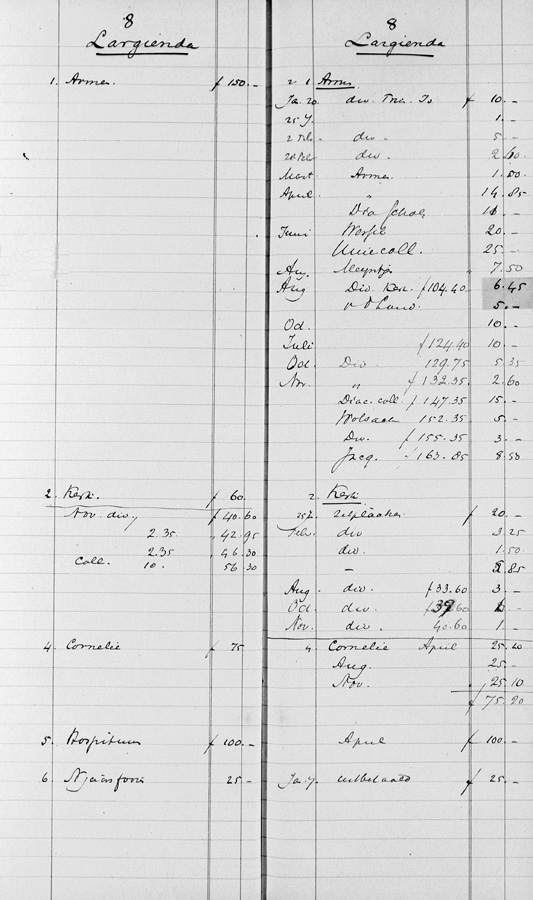 8
Largienda
1. Armen. f 150.-
2. Kerk. f 60.
Nov. div. f 40.60
2.35 42.95
2.35 46.30
Coll. 10. 56.30
4. Cornelie f 75
5. Hospitium f 100.-
6. 25.-
8
Largienda
1 Armen
Ja. 20. div. f 10.-
25 J. 1.-
2 Feb. div. 5.-
20 Feb div. 2.40
Maart Armen 1.50
April " 14.85
Dia Schol 10.-
Juni 20.-
Uniecoll. 25.-
Aug. 7.50
Aug Div. Ker. f 104.40 6.45
v d 5.-
Oct. 10.-
Juli f 124.40 10.-
Oct. Div. 129.75 5.35
Nov. " f 132.35 2.60
Diac. coll. f 147.35 15.-
152.35 5.-
Div. f 155.35 3.-
Jacq. 163.85 8.50
2. Kerk
25 J. zitplaatsen f 20.-
Feb. div 3.25
div. 1.50
- 5.85
Aug. div. f 33.60 3.-
Oct. div. f 39.60
Nov. div. 40.60 1.-
4 Cornelie April 25.10
Aug. 25.-
Nov. 25.10
f 75.20
April f 100.-
Ja. 7. uitbetaald f 25.-